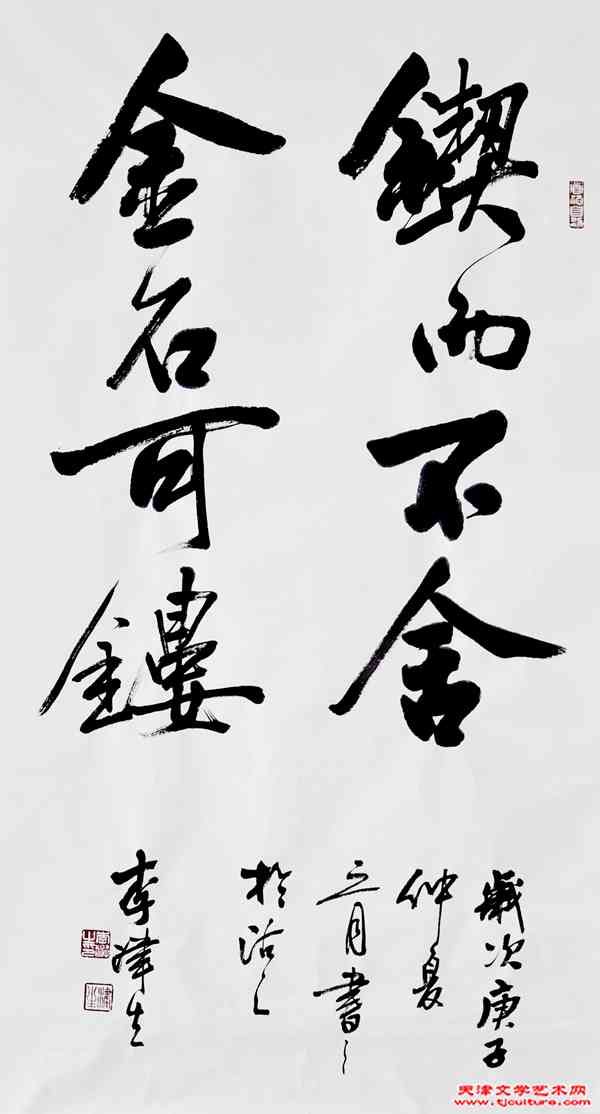 鍥而不舍
金石可鏤
歲次庚子
仲夏
之月書
於沽上
李津生
天津文学艺术网
www.tjculture.com